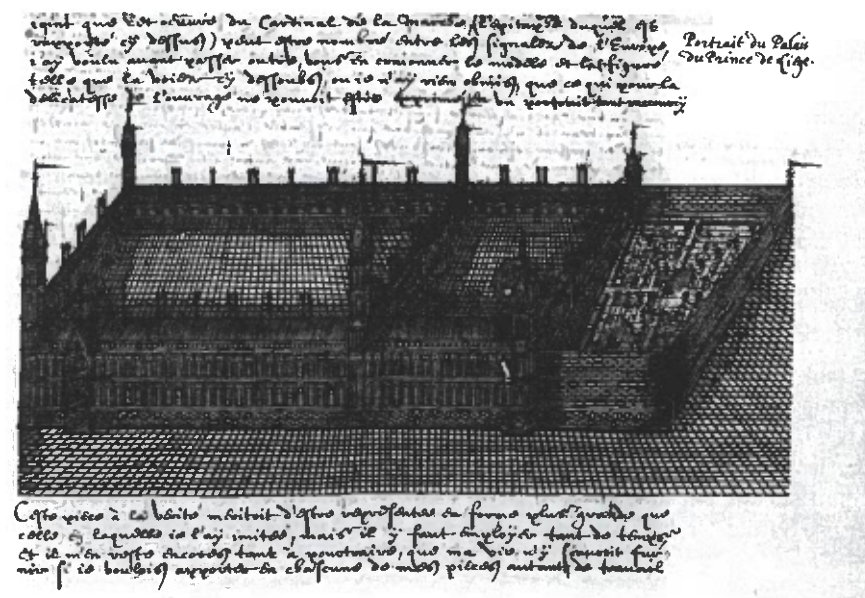 joint que cet œuvre du Cardinal de la Marck (l'epitaphe duquel est
rapporté cy dessus) peut estre nombré entre les signalez de l'Europe,
i'ay voulu avant passer outre, vous en crayonner le modele et la figure
telle que la voiez cy dessoubs, ou ie n'ay rien obmis, que ce qui pour la
delicatesse de l'ouvrage ne pouvoit estre en portrait tant raccourcy
Portrait du Palais
du Prince de Liege.
Ceste piece à la verité meritoit d'estre representee en forme plus grande que
celle en laquelle ie l'ay imitee, mais il y faut employer tant de temps
et il m'en reste encores tant à pourtraire, que ma vie n'y sçauroit four-
nir si ie voulois apporter en chascune de mes pieces autant de travail